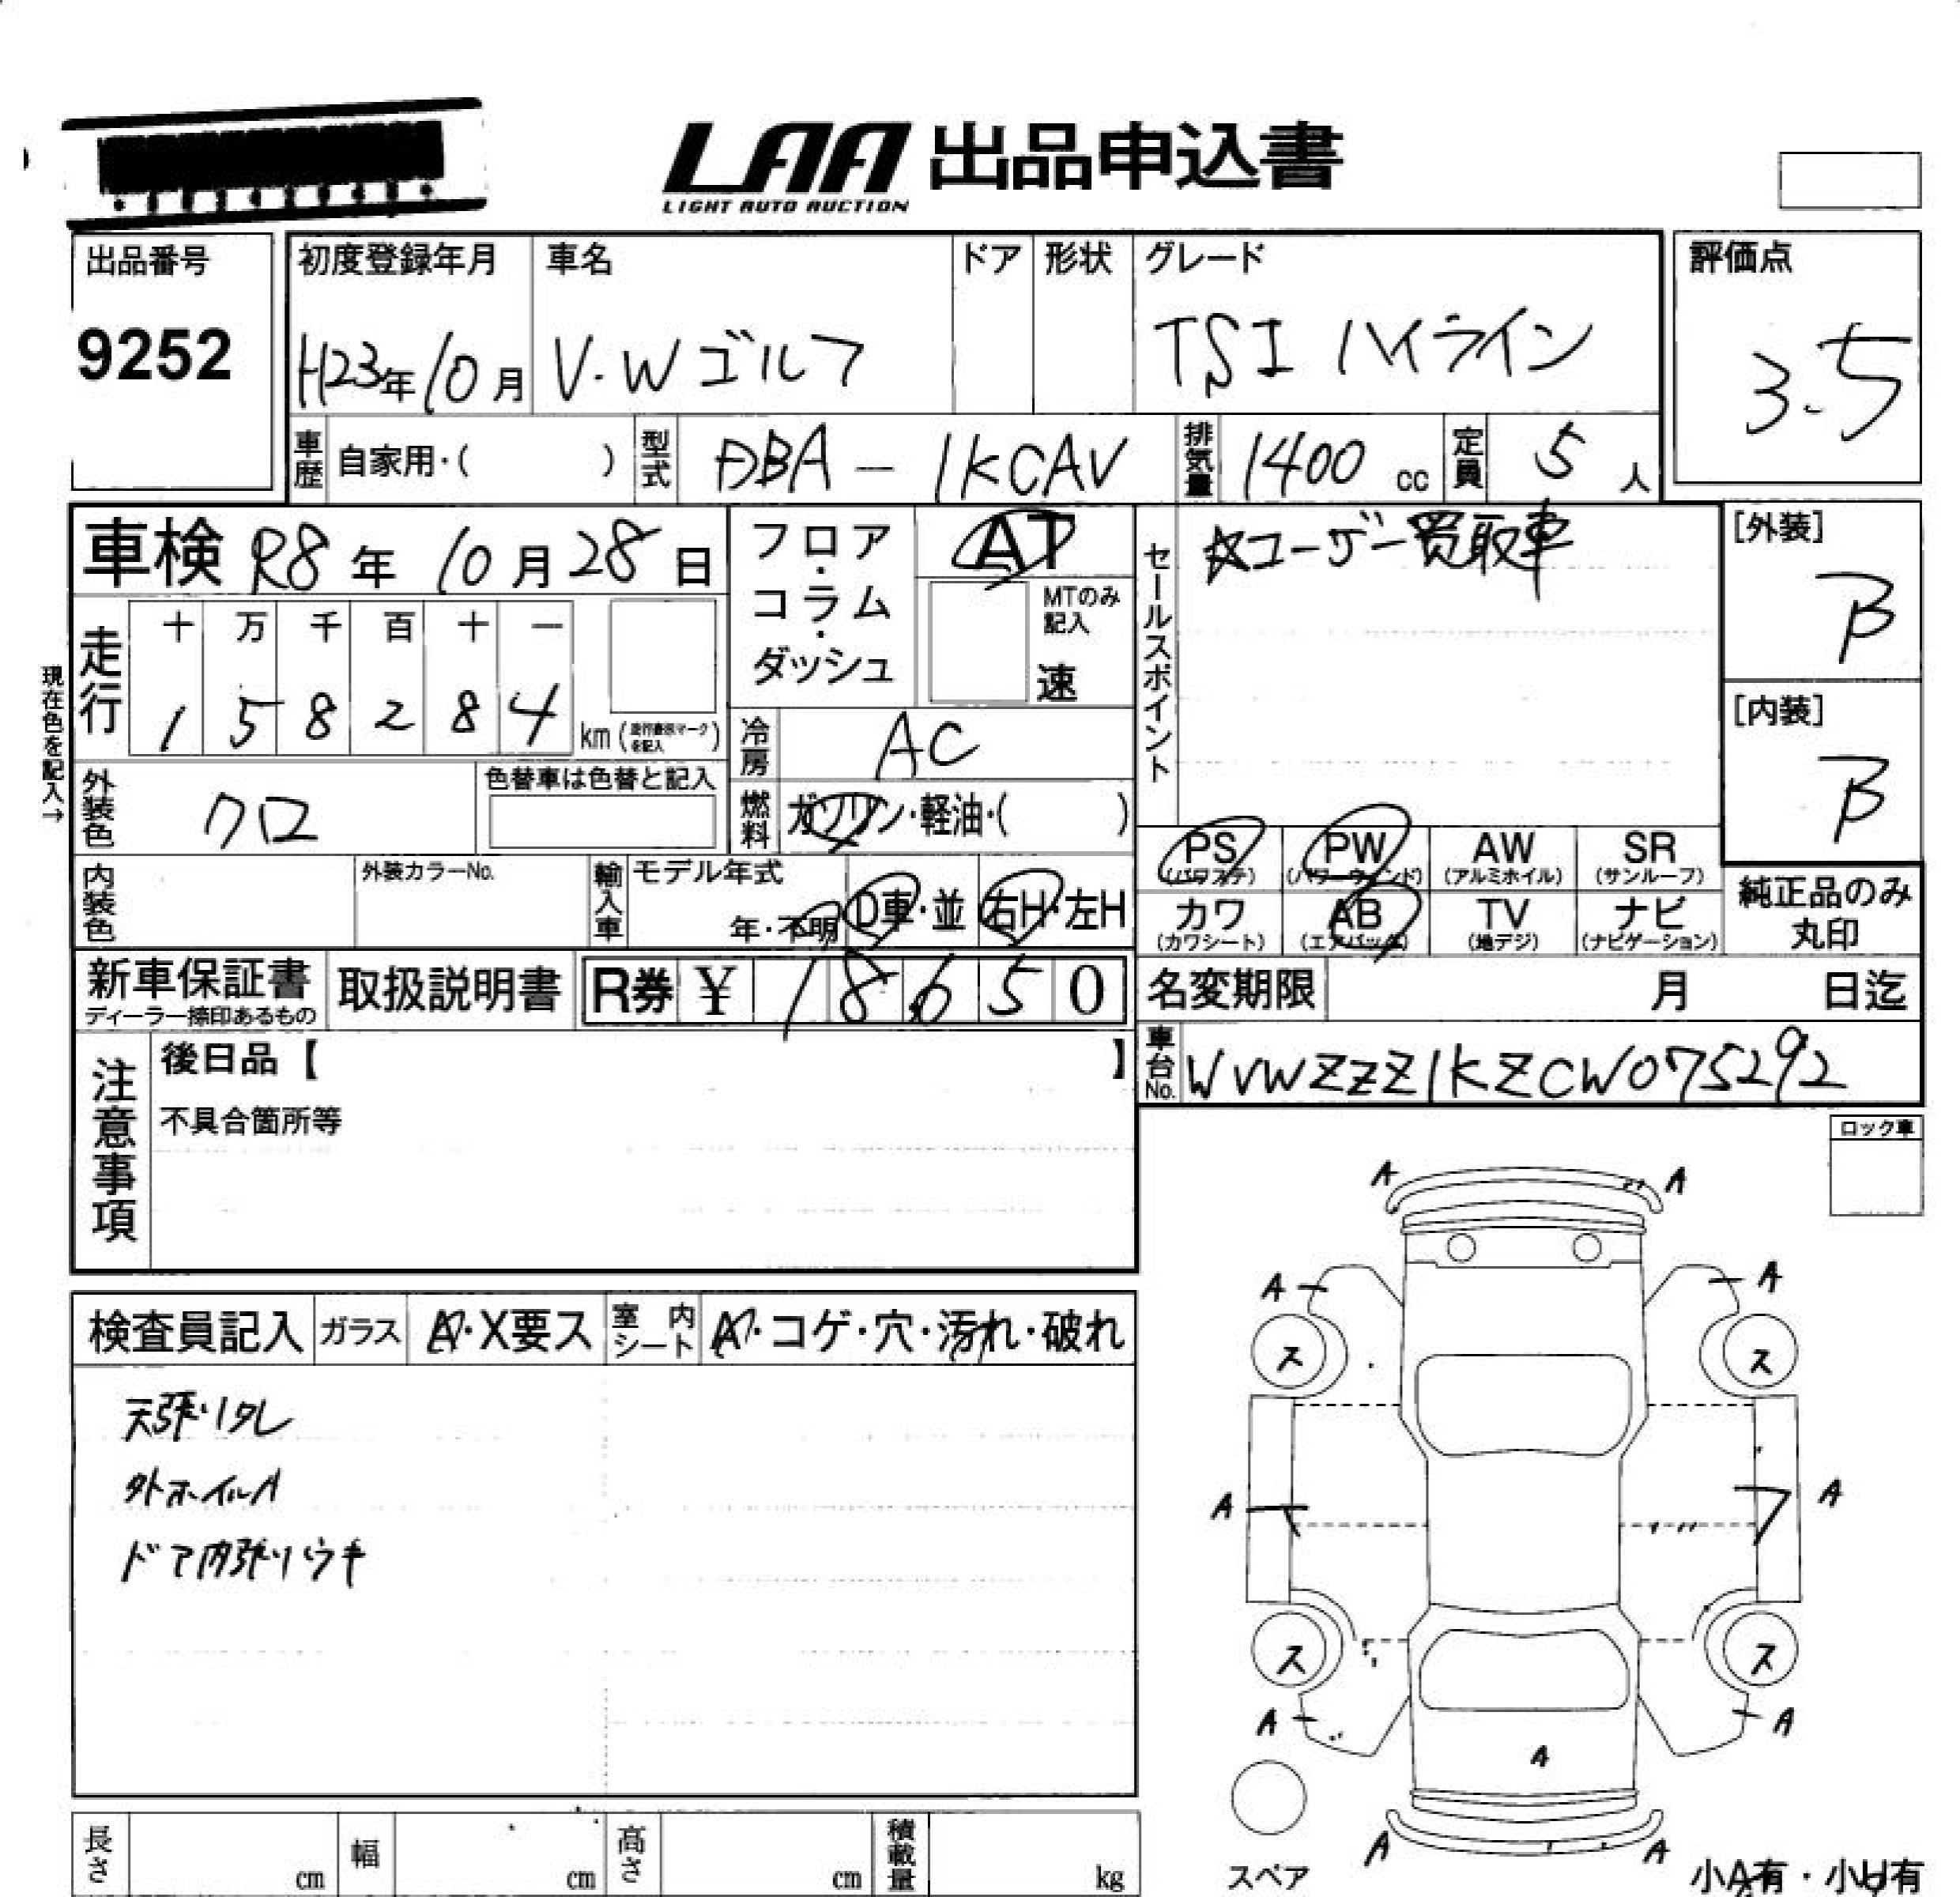 LAA 出品申込書
LIGHT AUTO AUCTION
出品番号
9252
初度登録年月
H23年10月
車名
V.Wゴルフ
ドア
形状
グレード
TSI ハイライン
評価点
3.5
車歴
自家用・( )
型式
DBA-1KCAV
排気量
1400 cc
定員
5人
車検 R8年10月28日
フロア・コラム・ダッシュ
AT
MTのみ記入
速
セールスポイント
☆ユーザー買取車
[外装]
B
[内装]
B
現在色を記入→
走行
十 万 千 百 十 一
1 5 8 2 8 4 km
冷房
AC
燃料
ガソリン・軽油・( )
外装色
クロ
色替車は色替と記入
内装色
外装カラーNo.
輸入車
モデル年式
年・不明
D車・並
右H・左H
PS
(パワステ)
PW
(パワーウィンド)
AW
(アルミホイル)
SR
(サンルーフ)
カワ
(カワシート)
AB
(エアバック)
TV
(地デジ)
ナビ
(ナビゲーション)
純正品のみ
丸印
新車保証書
ディーラー捺印あるもの
取扱説明書
R券 ¥ 18650
名変期限 月 日迄
車台No.
WVWZZZ1KZCW075292
注意事項
後日品【 】
不具合箇所等
ロック車
検査員記入
ガラス
A・X要ス
室内シート
A・コゲ・穴・汚れ・破れ
天張りタレ
外ホイルA
ドア内張りウキ
A A
A A
ス ス
A A
ス ス
A A
A
A A
スペア
小A有・小U有
長さ cm
幅 cm
高さ cm
積載量 kg